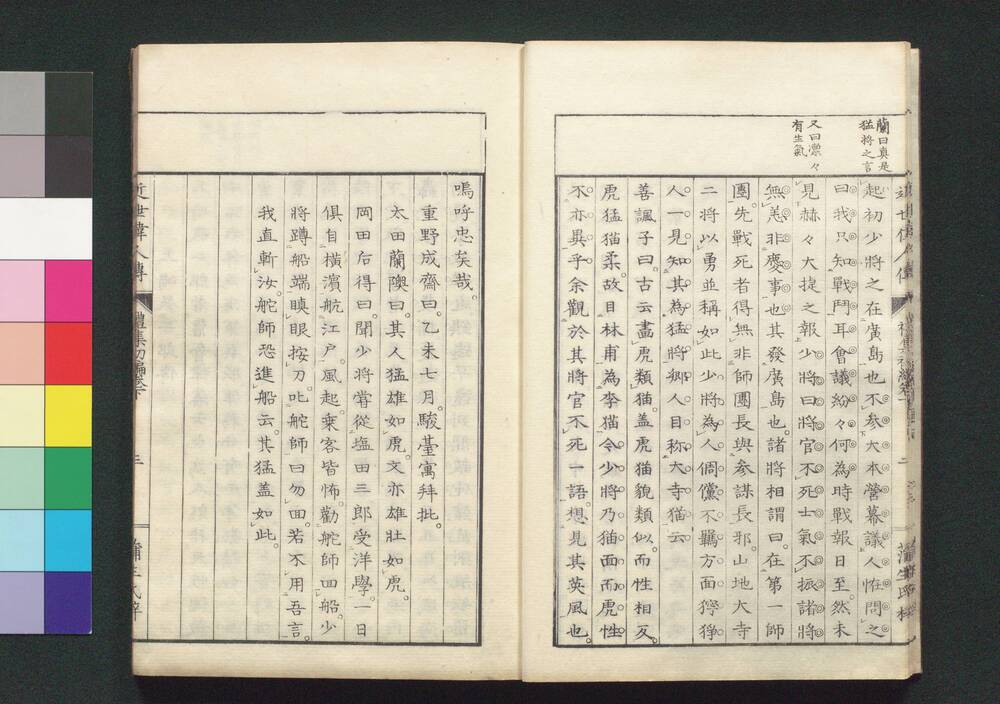 蘭曰真是
猛将之言
又曰凛々
有生氣
起初少將之在廣島也不參大本營幕議人恠問之
曰我只知戰鬥耳會議紛々何為時戰報日至然未
見赫々大捷之報少將曰將官不死士氣不振諸將
無恙非慶事也其發廣島也諸將相謂曰在第一師
團先戰死者得無非師團長與參謀長邪山地大寺
二將以勇並稱如此少將為人倜儻不羈方面獰猙
人一見知其為猛將鄉人目称大寺猫云
善諷子曰古云畵虎類猫蓋虎猫貌類似而性相反
虎猛猫柔故目林甫為李猫令少將乃猫面而虎性
不亦異乎余觀於其將官不死一語想見其英風也
嗚呼忠矣哉
重野成齋曰乙未七月駿臺寓拜批
太田蘭隩曰其人猛雄如虎文亦雄壯如虎
岡田后得曰聞少將嘗從塩田三郎受洋學一日
俱自橫濱航江戶風起乗客皆怖勸舵師回船少
將蹲船端瞋眼按刀叱舵師曰勿回若不用吾言
我直斬汝舵師恐進船云其猛蓋如此
近世偉人傳
禮集初編卷下
三